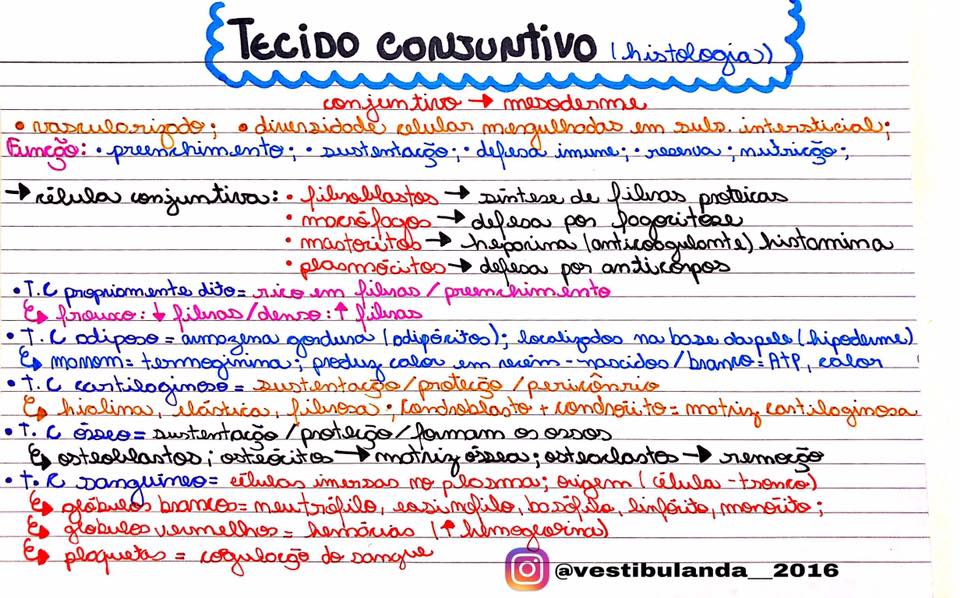 TECIDO CONJUNTIVO (histologia)
conjuntivo → mesoderme
• vascularizado; • diversidade celular mergulhadas em subs. intersticial;
Função: • preenchimento; • sustentação; • defesa imune; • reserva; nutrição;
→ célula conjuntiva: • fibroblastos → síntese de fibras proteicas
• macrófagos → defesa por fagocitose
• mastócitos → heparina (anticoagulante) histamina
• plasmócitos → defesa por anticorpos
• T.C propriamente dito = rico em fibras / preenchimento
↳ frouxo: ↓ fibras / denso: ↑ fibras
• T.C adiposo = armazena gordura (adipócitos); localizados na base da pele (hipoderme)
↳ marrom = termoginina; produz calor em recém-nascidos / branco = ATP, calor
• T.C cartilaginoso = sustentação / proteção / pericôndrio
↳ hialina, elástica, fibrosa • condroblasto + condrócito = matriz cartilaginosa
• T.C ósseo = sustentação / proteção / formam os ossos
↳ osteoblastos; osteócitos → matriz óssea; osteoclasto → remoção
• T.C sanguíneo = células imersas no plasma; origem (célula-tronco)
↳ glóbulos brancos = neutrófilo, eosinofilo, basófilo, linfócito, monócito;
↳ glóbulos vermelhos = hemácias (↑ hemoglobina)
↳ plaquetas = coagulação do sangue
@vestibulanda__2016